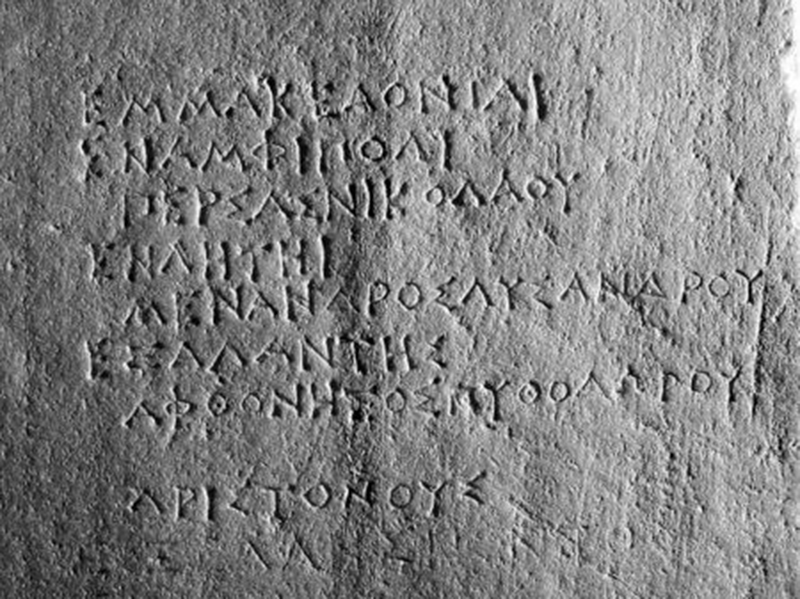 ΕΜΜΑΚΕΔΟΝΙΑΙ
ΕΝΑΜΦΙΠΟΛΙ
ΠΕΡΣΑΣΝΙΚΟΛΑΟΥ
ΕΝΛΗΤΗΙ
ΜΕΝΑΝΔΡΟΣΛΥΣΑΝΔΡΟΥ
ΕΞΑΛΛΑΝΤΗΣ
ΑΦΘΟΝΗΤΟΣΠΥΘΟΔΩΡΟΥ
ΑΡΙΣΤΟΝΟΥΣ